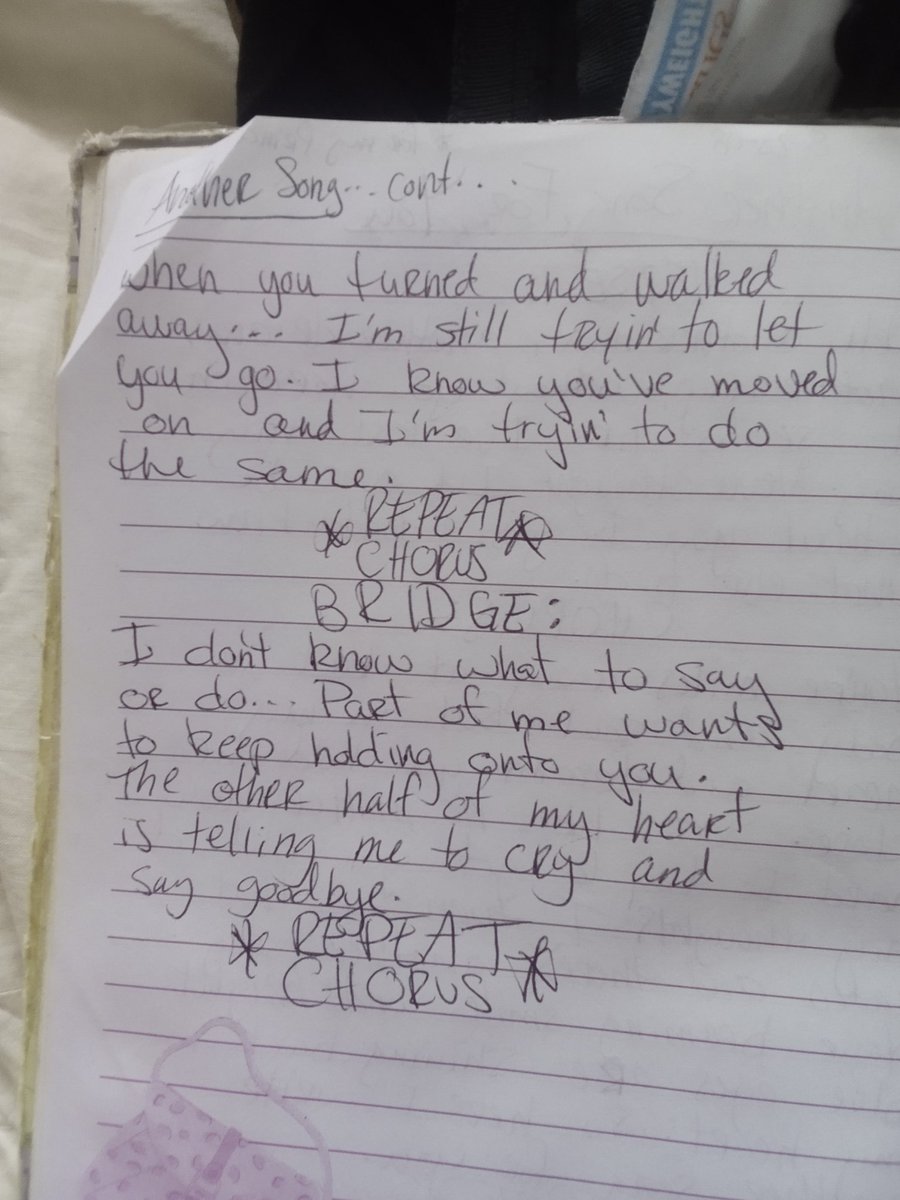 Another Song... cont...
when you turned and walked
away... I'm still tryin' to let
you go. I know you've moved
on and I'm tryin' to do
the same.
* REPEAT *
CHORUS
BRIDGE:
I don't know what to say
or do... Part of me wants
to keep holding onto you.
The other half of my heart
is telling me to cry and
say goodbye.
* REPEAT *
CHORUS